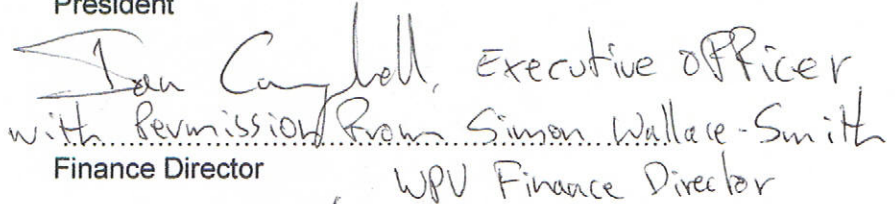 President
Ian Campbell, Executive Officer
with Permission from Simon Wallace-Smith
Finance Director
, WPV Finance Director